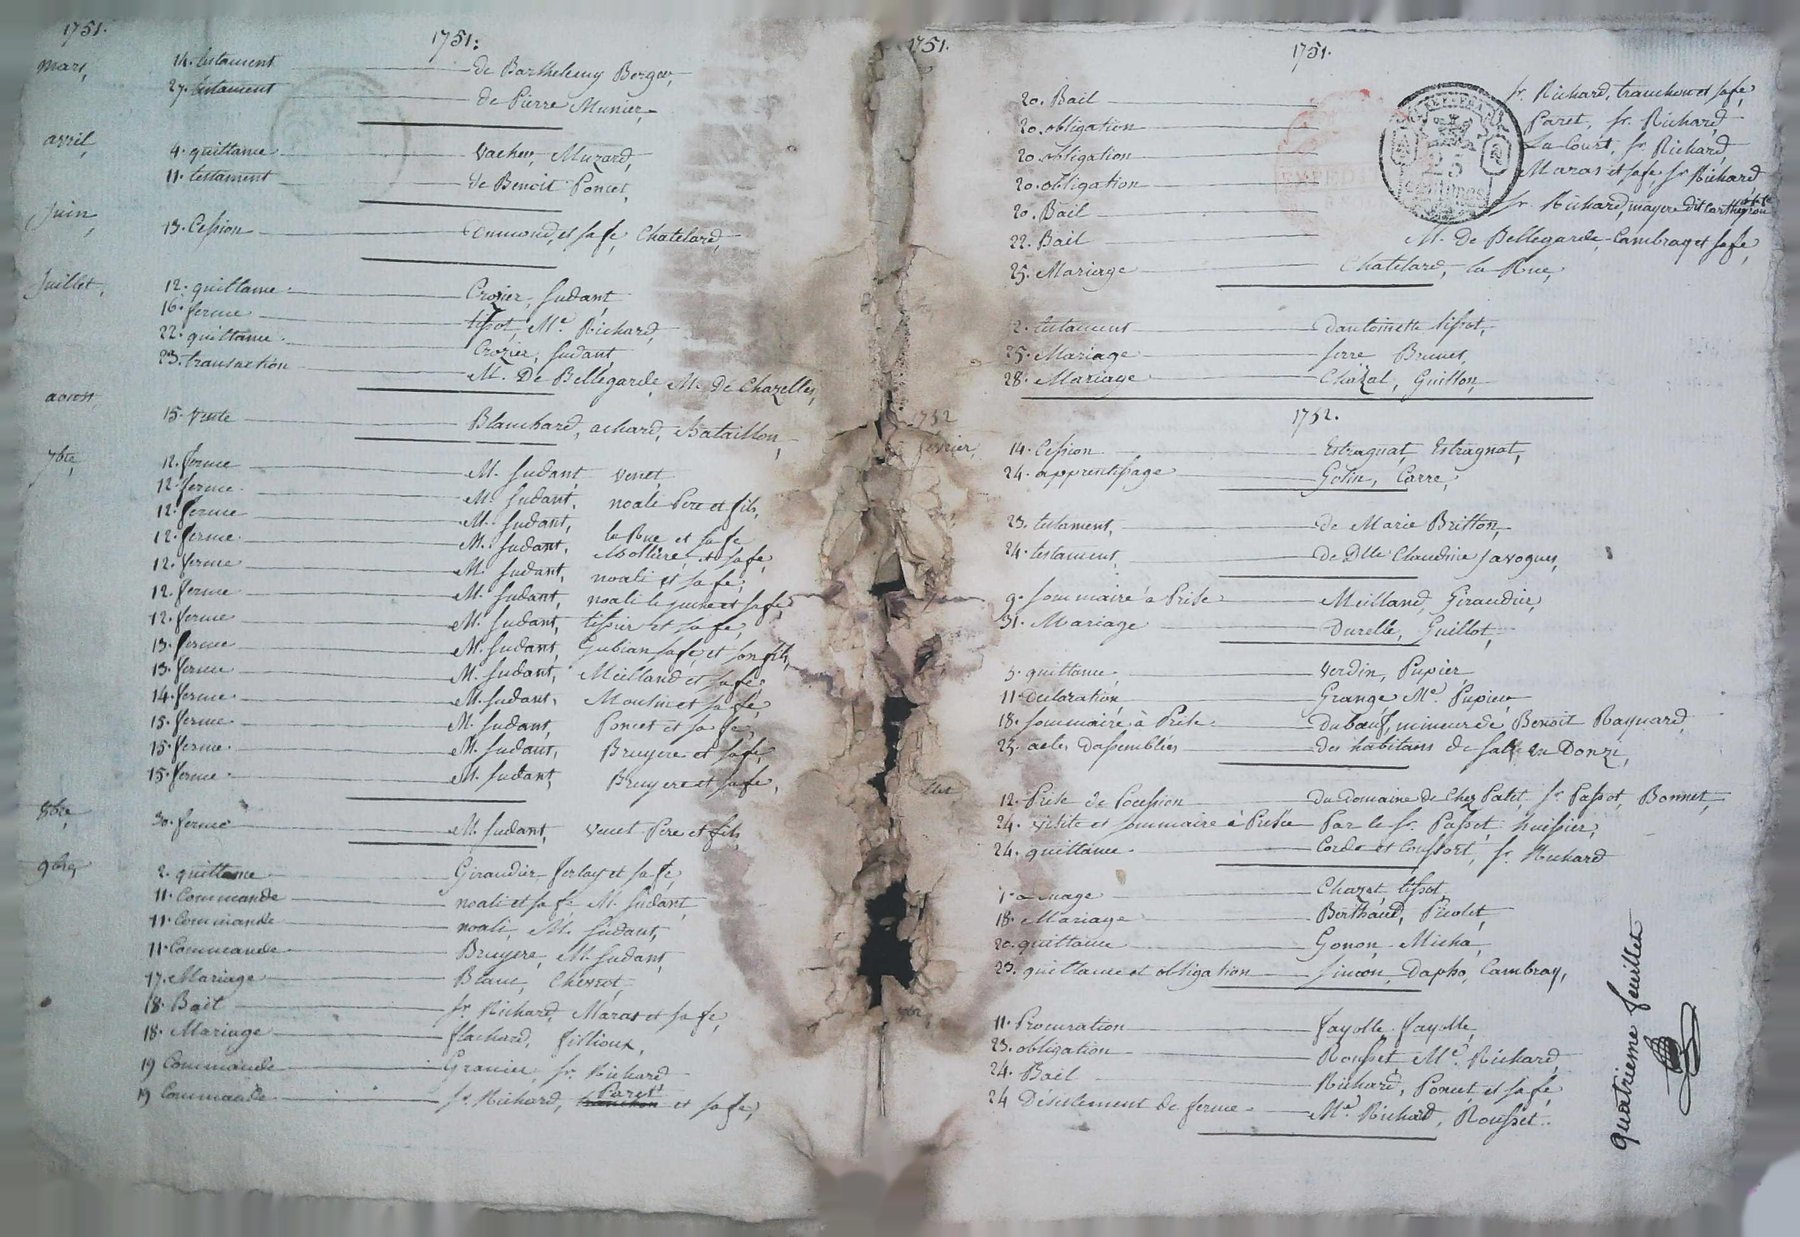 1751.
1751:
mars, 14. testament de Barthelemy Berger,
27. testament de Pierre Munier,
avril, 4. quittance Vacher, Muzard,
11. testament de Benoit Poncet,
Juin, 13. Cession et sa fe, Chatelard,
Juillet, 12. quittance Crozier, Sudant,
16. ferme tissot, Me. Richard,
22. quittance Crozier, Sudant
23. transaction M. De Bellegarde, M. De Chazelles,
aoust, 15. vente Blanchard, achard, Bataillon,
7bre, 12. ferme M. Sudant, venet
12. ferme M. Sudant, noali Pere et fils,
12. ferme M. Sudant, la Rue et sa fe
12. ferme M. Sudant, et sa fe,
12. ferme M. Sudant, noali et sa fe,
12. ferme M. Sudant, noali le jeune et sa fe,
12. ferme M. Sudant, tissier et sa fe,
13. ferme M. Sudant, Gubian sa fe, et son fils,
13. ferme M. Sudant, Meilland et sa fe,
14. ferme M. Sudant, Moulin et sa fe,
15. ferme M. Sudant, Poncet et sa fe,
15. ferme M. Sudant, Bruyere et sa fe,
15. ferme M. Sudant, Bruyere et sa fe,
8bre, 30. ferme M. Sudant, venet Pere et fils,
9bre, 2. quittance Giraudier ferlay et sa fe,
11. Commande noali et sa fe M. Sudant,
11. Commande noali, M. Sudant,
11. Commande Bruyere, M. Sudant,
17. Mariage Blanc,
18. Bail Sr. Richard, Maras et sa fe,
18. Mariage flachard, fillioux,
19 Commande Granier, Sr. Richard
19 Commande Sr. Richard, Paret et sa fe,
1751.
1751.
20. Bail Sr. Richard, tranchon et sa fe,
20. obligation Paret, Sr. Richard,
20. obligation La Court, Sr. Richard,
20. obligation Maras et sa fe, Sr. Richard
20. Bail Sr. Richard, mayere dit
22. Bail M. De Bellegarde Cambray et sa fe,
25. Mariage Chatelard, la Rue,
2. testament Dantoinette tissot,
25. Mariage serre Brunet,
28. Mariage Chazal, Guillon,
1752.
1752
fevrier, 14. Cession Estragnat, Estragnat,
24. apprentissage Golin, Carré,
23. testament, de Marie Britton,
24. testament, de Dlle Claudine Savogny,
9. sommaire à Prise Meilland, Giraudier,
31. Mariage Durelle, Guillot,
5. quittance, Verdin, Pupier,
11. declaration, Grange Me. Pupier
18. sommaire à Prise Duboeuf, mineur de Benoit Raynard,
25. actes dassemblées des habitans de salt en Donzi,
12. Prise de Possession du Domaine de Chez Palet Sr. Passot, Bonnet,
24. visite et sommaire à Prisée Par le Sr. Passet huissier,
24. quittance Corde et Consort, Sr. Richard
Chazet, tissot,
18. Mariage Berthaud, Picolet,
20. quittance Gonon, Micha,
23. quittance et obligation simeon, Dapho, Cambray,
11. Procuration fayolle, fayolle,
23. obligation Rousset Me. Richard,
24. Bail Richard, Poncet et sa fe,
24 Desistement de ferme Me. Richard, Rousset.
quatrieme feuillet